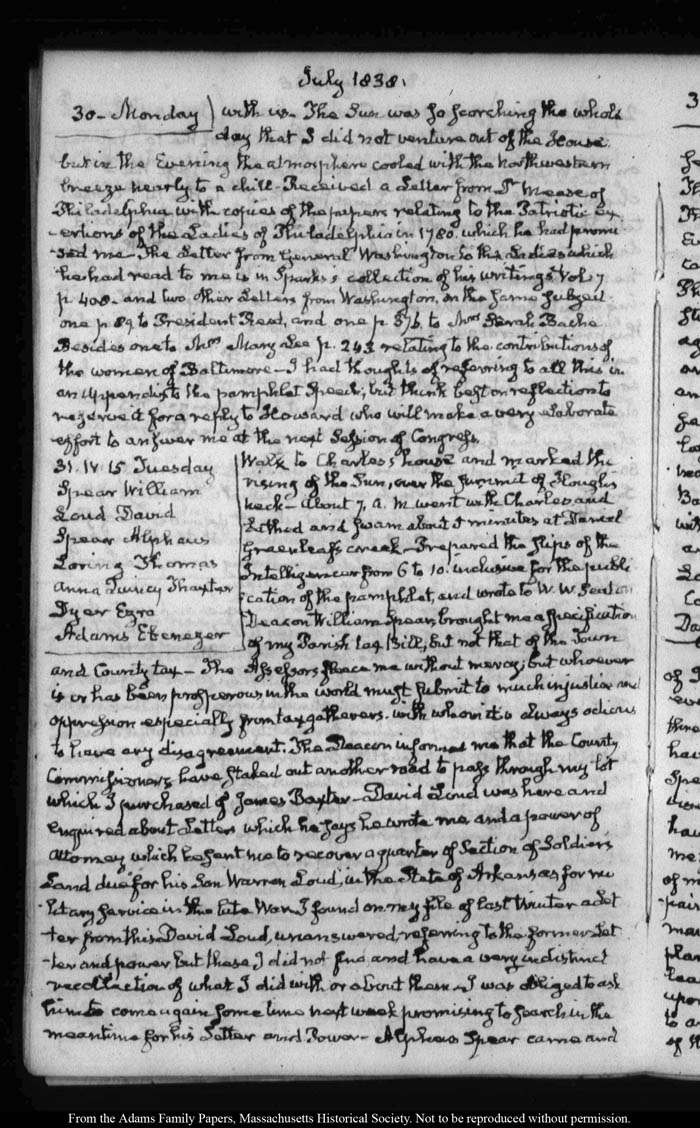 July 1838.
30- Monday) with us- The Sun was so scorching the whole
day that I did not venture out of the House,
but in the Evening the atmosphere cooled with the Northwestern
breeze nearly to a chill- Received a Letter from Dr Mease of
Philadelphia with copies of the papers relating to the Patriotic ex
-ertions of the Ladies of Philadelphia in 1780. which he had promi
-sed me- The Letter from General Washington to the Ladies which
he had read to me is in Sparks's collection of his writings Vol. 7
p. 408- and two other Letters from Washington, on the same subject
one p 89 to President Reed, and one p 376, to Mrs Sarah Bache
Besides one to Mrs Mary Lee p. 243 relating to the contributions of
the women of Baltimore- I had thoughts of referring to all this in
an Appendix to the pamphlet Speech; but think best on reflection to
reserve it for a reply to Howard who will make a very elaborate
effort to answer me at the next Session of Congress.
31. IV. 15 Tuesday
Spear William
Loud David
Spear Alpheus
Loring Thomas
Anna Quincy Thaxter
Dyer Ezra
Adams Ebenezer
Walk to Charles's house and marked the
rising of the Sun, over the summit of Houghs
neck- About 7, A. M went with Charles and
bathed and swam about 5 minutes at Daniel
Greenleaf's creek- Prepared the slips of the
Intelligencer from 6 to 10. inclusive for the publi
cation of the pamphlet, and wrote to W. W. Seaton
Deacon William Spear, brought me a specification
of my Parish tax Bill, but not that of the Town
and County tax- The Assessors fleece me without mercy; but whoever
is or has been prosperous in the world must submit to much injustice and
oppression especially from taxgatherers. with whom it is always odious
to have any disagreement. The Deacon informed me that the County
Commissioners have staked out another road to pass through my lot
which I purchased of James Baxter- David Loud was here and
enquired about Letters which he says he wrote me and a power of
attorney which he sent me to recover a quarter of Section of Soldiers
Land due for his Son Warren Loud, in the State of Arkansas for mi
litary service in the late War. I found on my file of last Winter a Let
-ter from this David Loud, unanswered, referring to the former Let
-ter and power but these I did not find and have a very indistinct
recollection of what I did with or about them- I was obliged to ask
him to come again some time next week promising to search in the
meantime for his Letter and Power- Alpheus Spear came and
From the Adams Family Papers, Massachusetts Historical Society. Not to be reproduced without permission.